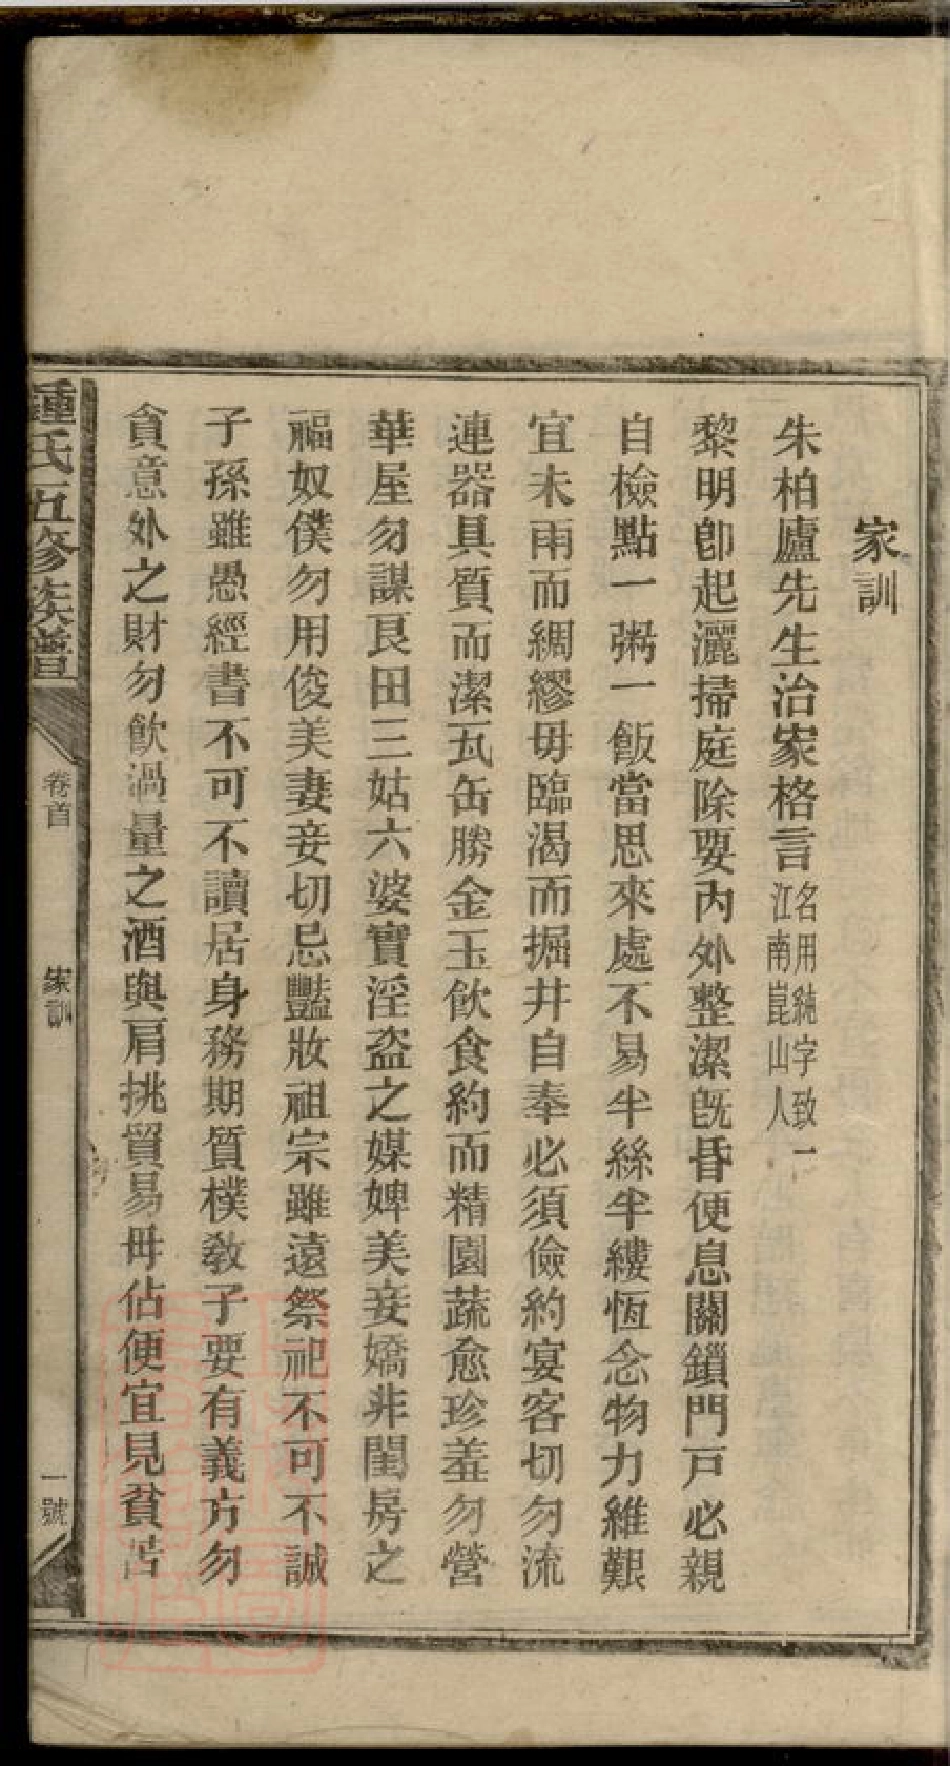 家訓
朱柏廬先生治家格言名用純字致一江南崑山人
黎明卽起灑掃庭除要內外整潔旣昏便息關鎖門戸必親
自檢點一粥一飯當思來處不易半絲半縷恆念物力維艱
宜未雨而綢繆毋臨渴而掘井自奉必須儉約宴客切勿流
連器具質而潔瓦缶勝金玉飮食約而精園蔬愈珍羞勿營
華屋勿謀良田三姑六婆實淫盜之媒婢美妾嬌非閨房之
福奴僕勿用俊美妻妾切忌豔妝祖宗雖遠祭祀不可不誠
子孫雖愚經書不可不讀居身務期質樸敎子要有義方勿
貪意外之財勿飮過量之酒與肩挑貿易毋佔便宜見貧苦
鍾氏五修族譜
卷首
家訓
一號